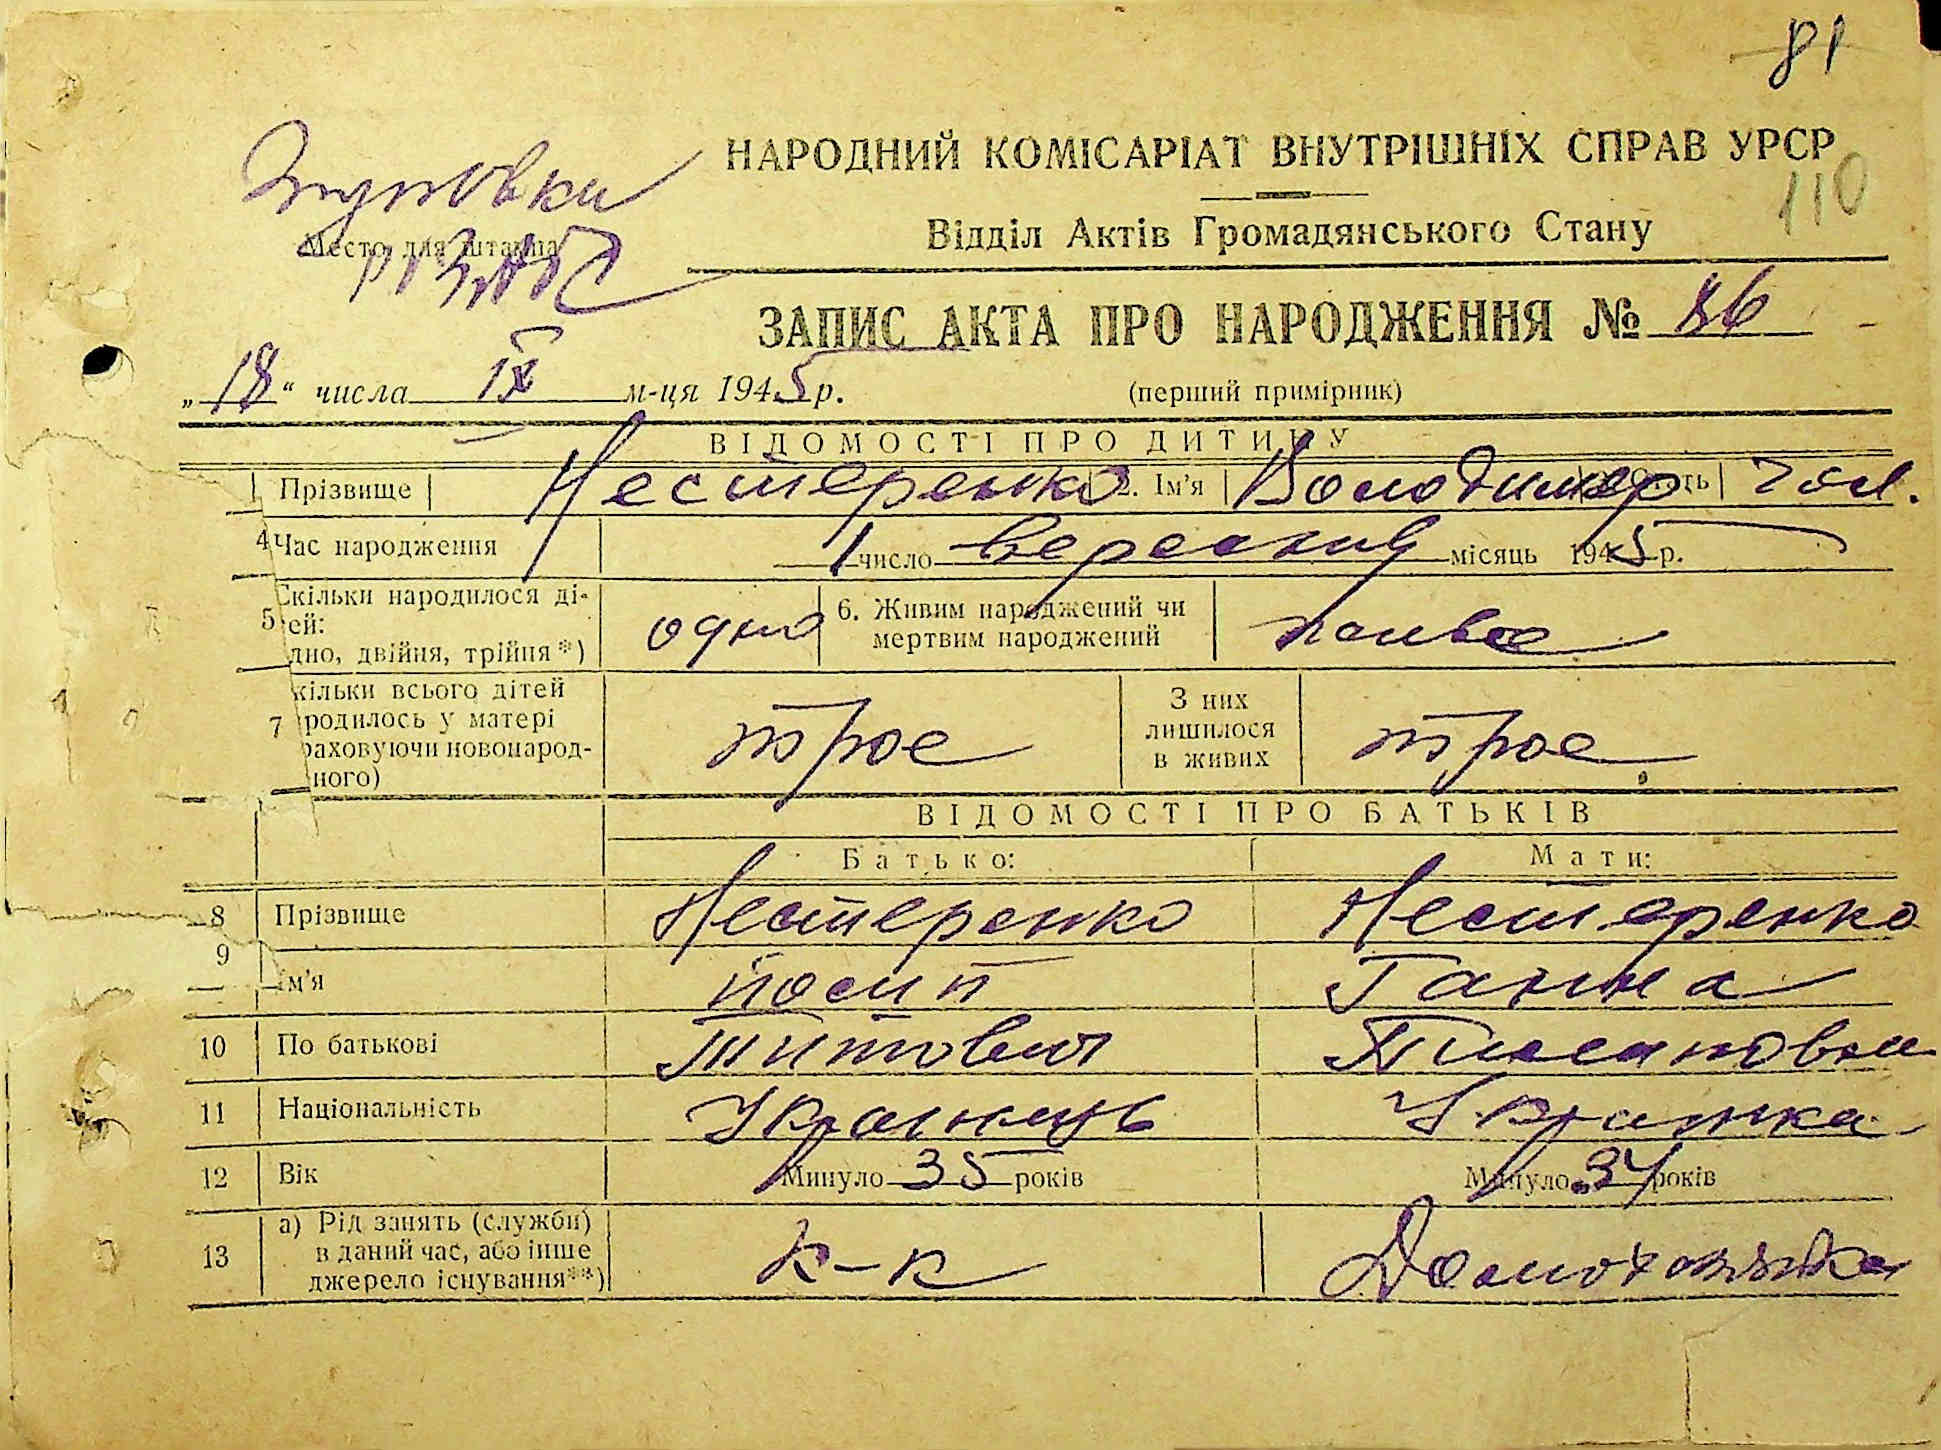 81
НАРОДНИЙ КОМІСАРІАТ ВНУТРІШНІХ СПРАВ УРСР
110
Место для штампа
Відділ Актів Громадянського Стану
ЗАПИС АКТА ПРО НАРОДЖЕННЯ № 86
„18“ числа IX м-ця 1945 р. (перший примірник)
ВІДОМОСТІ ПРО ДИТИНУ
Прізвище Нестеренко 2. Ім'я Володимер чол.
4 Час народження 1 число вересния місяць 1945 р.
5 Скільки народилося ді-
ей:
дно, двійня, трійня*) одно 6. Живим народжений чи
мертвим народжений живое
7 кільки всього дітей
родилось у матері
раховуючи новонарод-
ного) трое З них
лишилося
в живих трое
ВІДОМОСТІ ПРО БАТЬКІВ
Батько: Мати:
8 Прізвище Нестеренко Нестеренко
9 Ім'я Йосип Ганна
10 По батькові Титович
11 Національність Украінець Украінка
12 Вік Минуло 35 років Минуло 34 років
13 а) Рід занять (служби)
в даний час, або інше
джерело існування**) к-к Домохозяйка